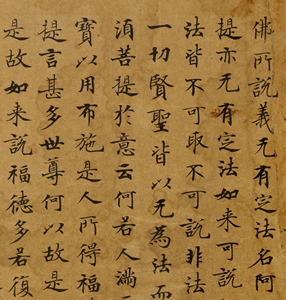 佛所說義无有定法名阿
提亦无有定法如来可說
法皆不可取不可說非法
一切賢聖皆以无為法而
湏菩提於意云何若人滿
寶以用布施是人所得福
提言甚多世尊何以故是
是故如来說福德多若復